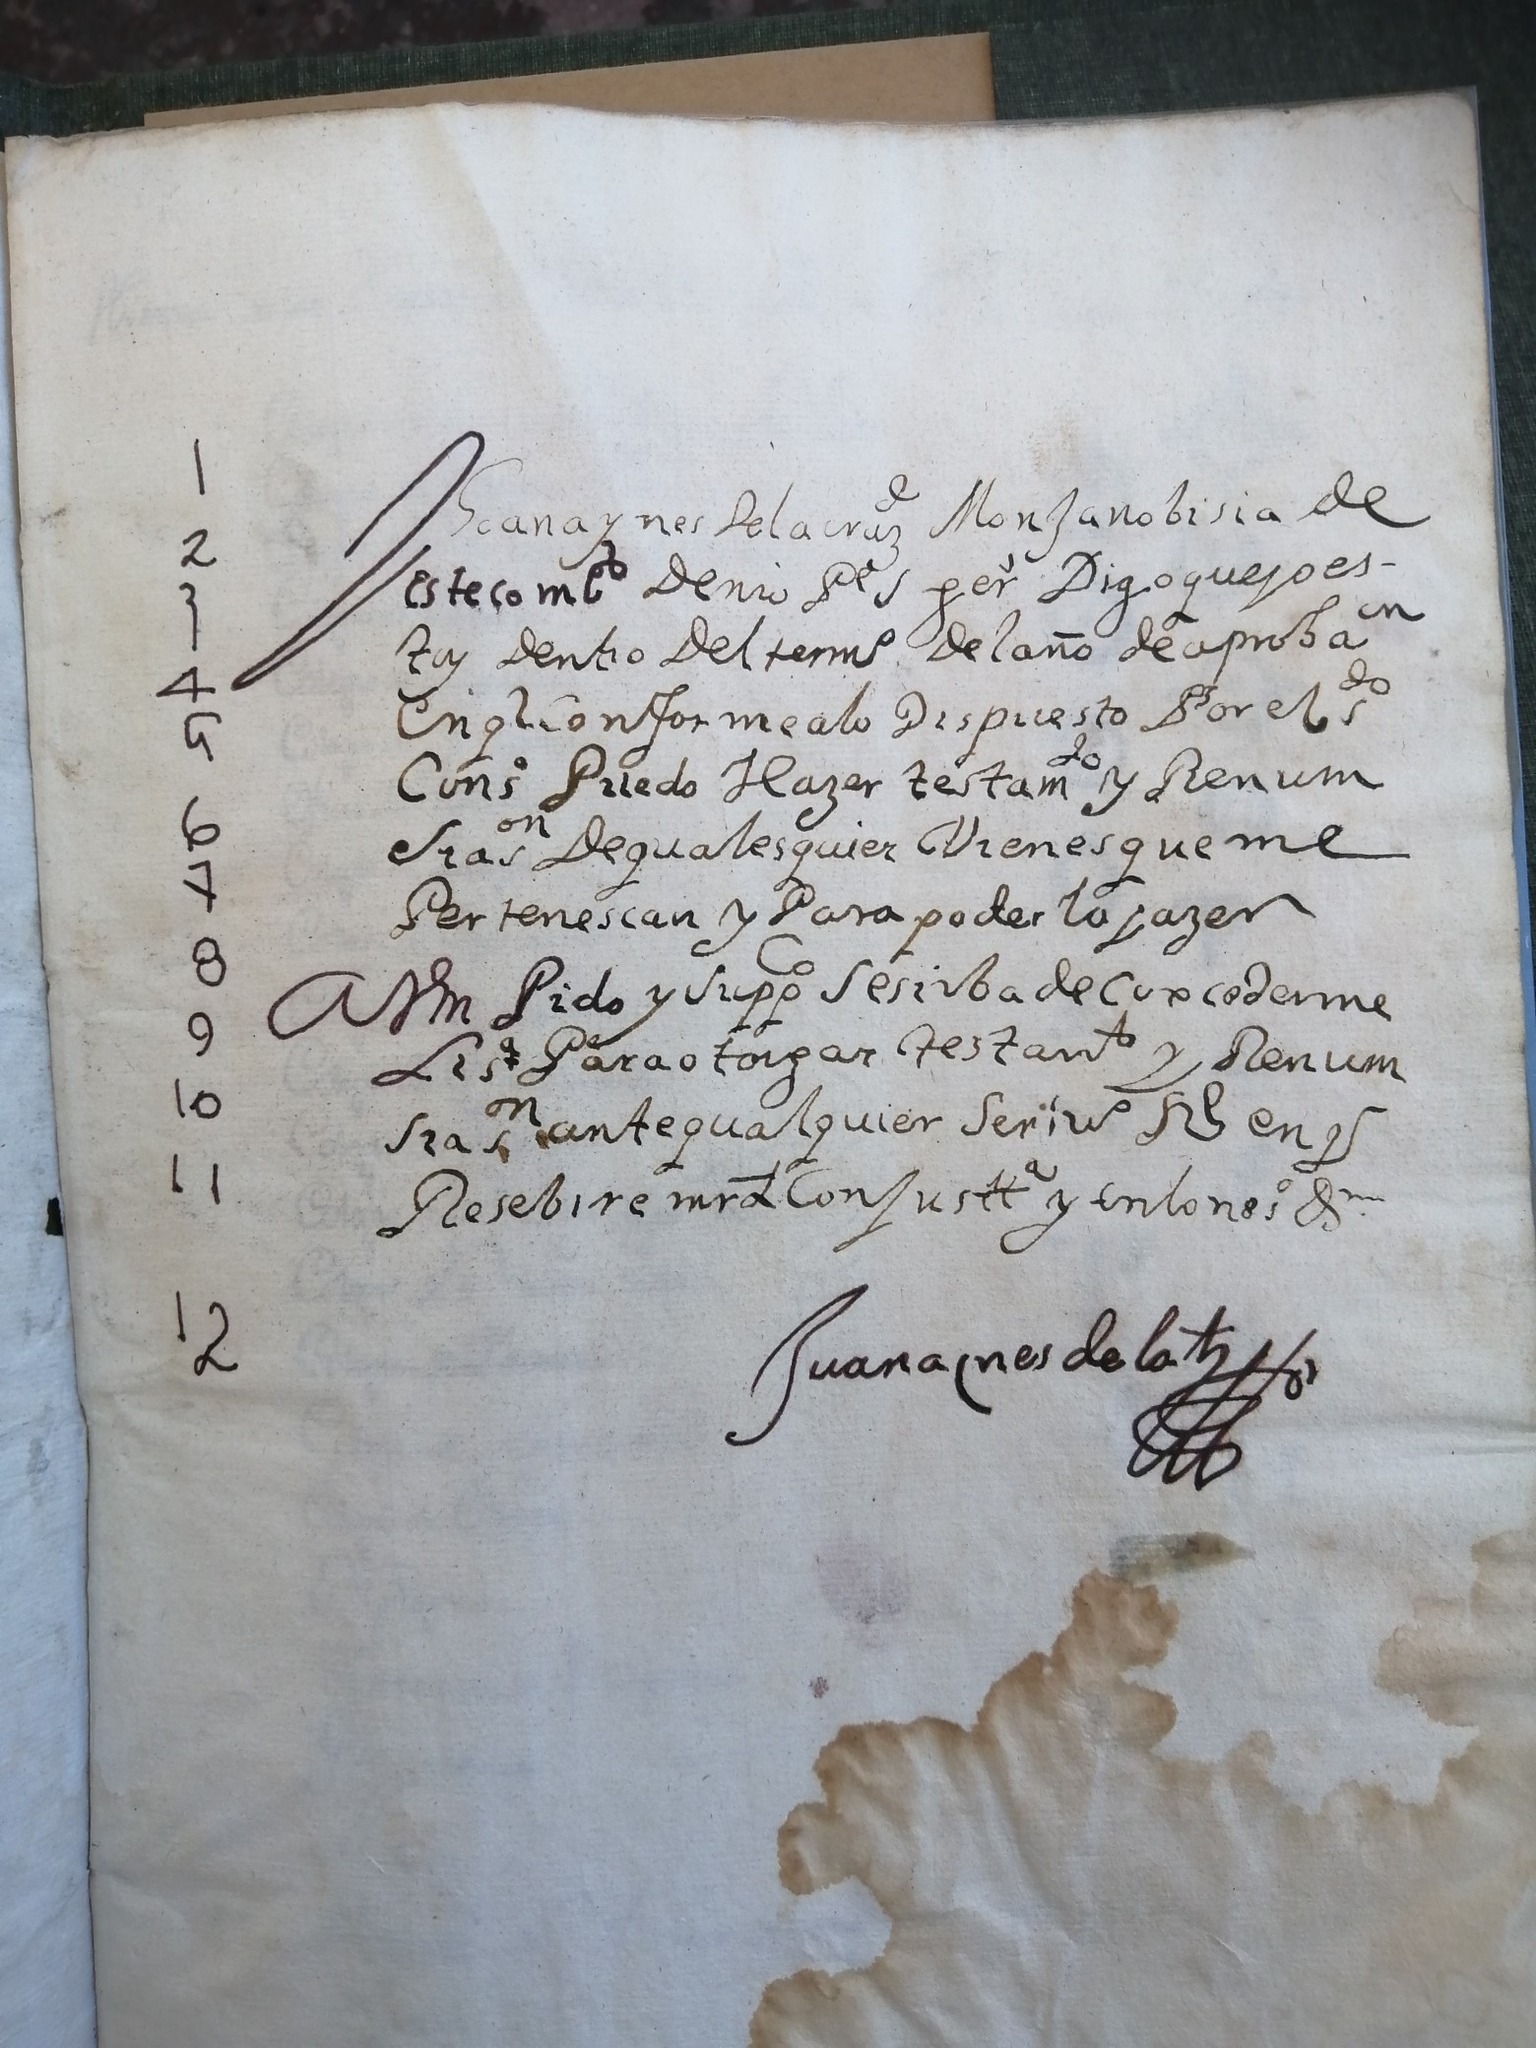 1 Juana ynes de la cruz Monja nobisia de
2 este combto de nro Pe S ger Digo que yo es-
3 toy dentro del termo del año de aprobaon
4 En q conforme a lo Dispuesto Por el sdo
5 Cons Puedo Hazer testamto y Renum
6 siason de qualesquier Vienes que me
7 Pertenescan y Para poderlo jazer
8 A Vm Pido y suppco se sirba de concederme
9 Lisa Para otorgar testamto y Renum
10 siason ante qualquier Serivo Rl en q
11 Resebire mrd Con justta y en lo neso &
12 Juana ynes de la +